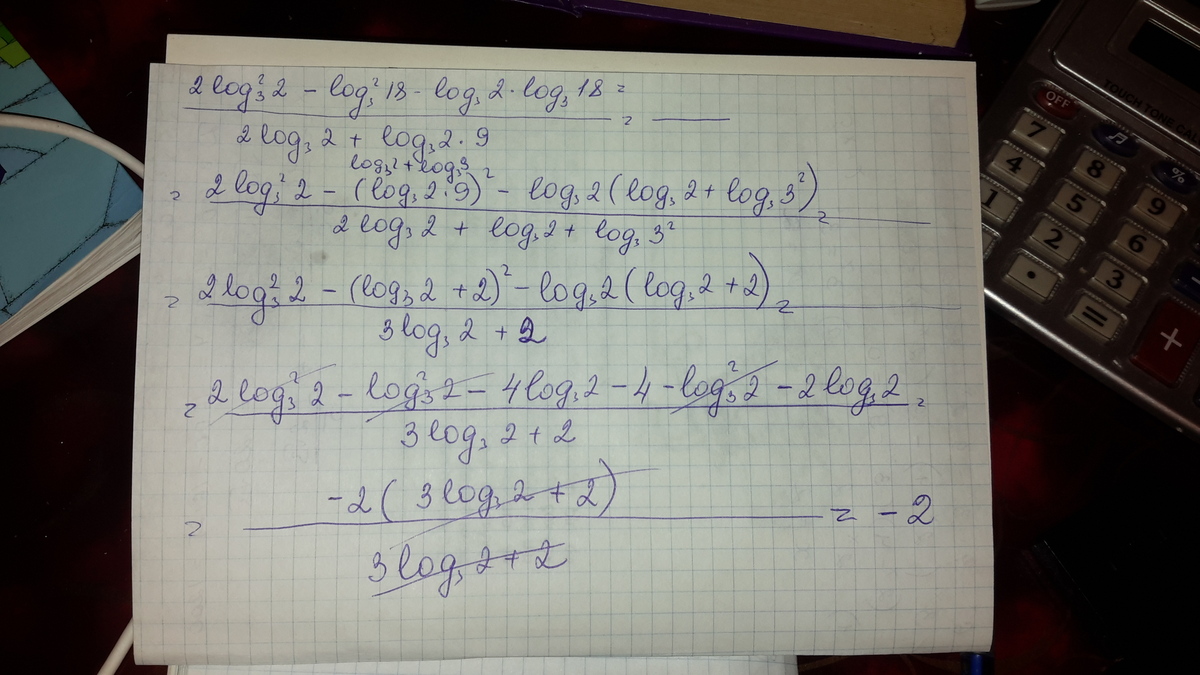 2log₃²2 - log₃²18 - log₃2·log₃18 =
2log₃2 + log₃2·9 =
log₃2 + log₃3
= 2log₃²2 - (log₃2·9)² - log₃2(log₃2 + log₃3²) =
2log₃2 + log₃2 + log₃3²
= 2log₃²2 - (log₃2 + 2)² - log₃2(log₃2 + 2) =
3log₃2 + 2
= 2log₃²2 - log₃²2 - 4log₃2 - 4 - log₃²2 - 2log₃2 =
3log₃2 + 2
= -2(3log₃2 + 2) = -2
3log₃2 + 2
OFF
TOUCH TONE
7 8 9
4 5 6
1 2 3
%
· = +